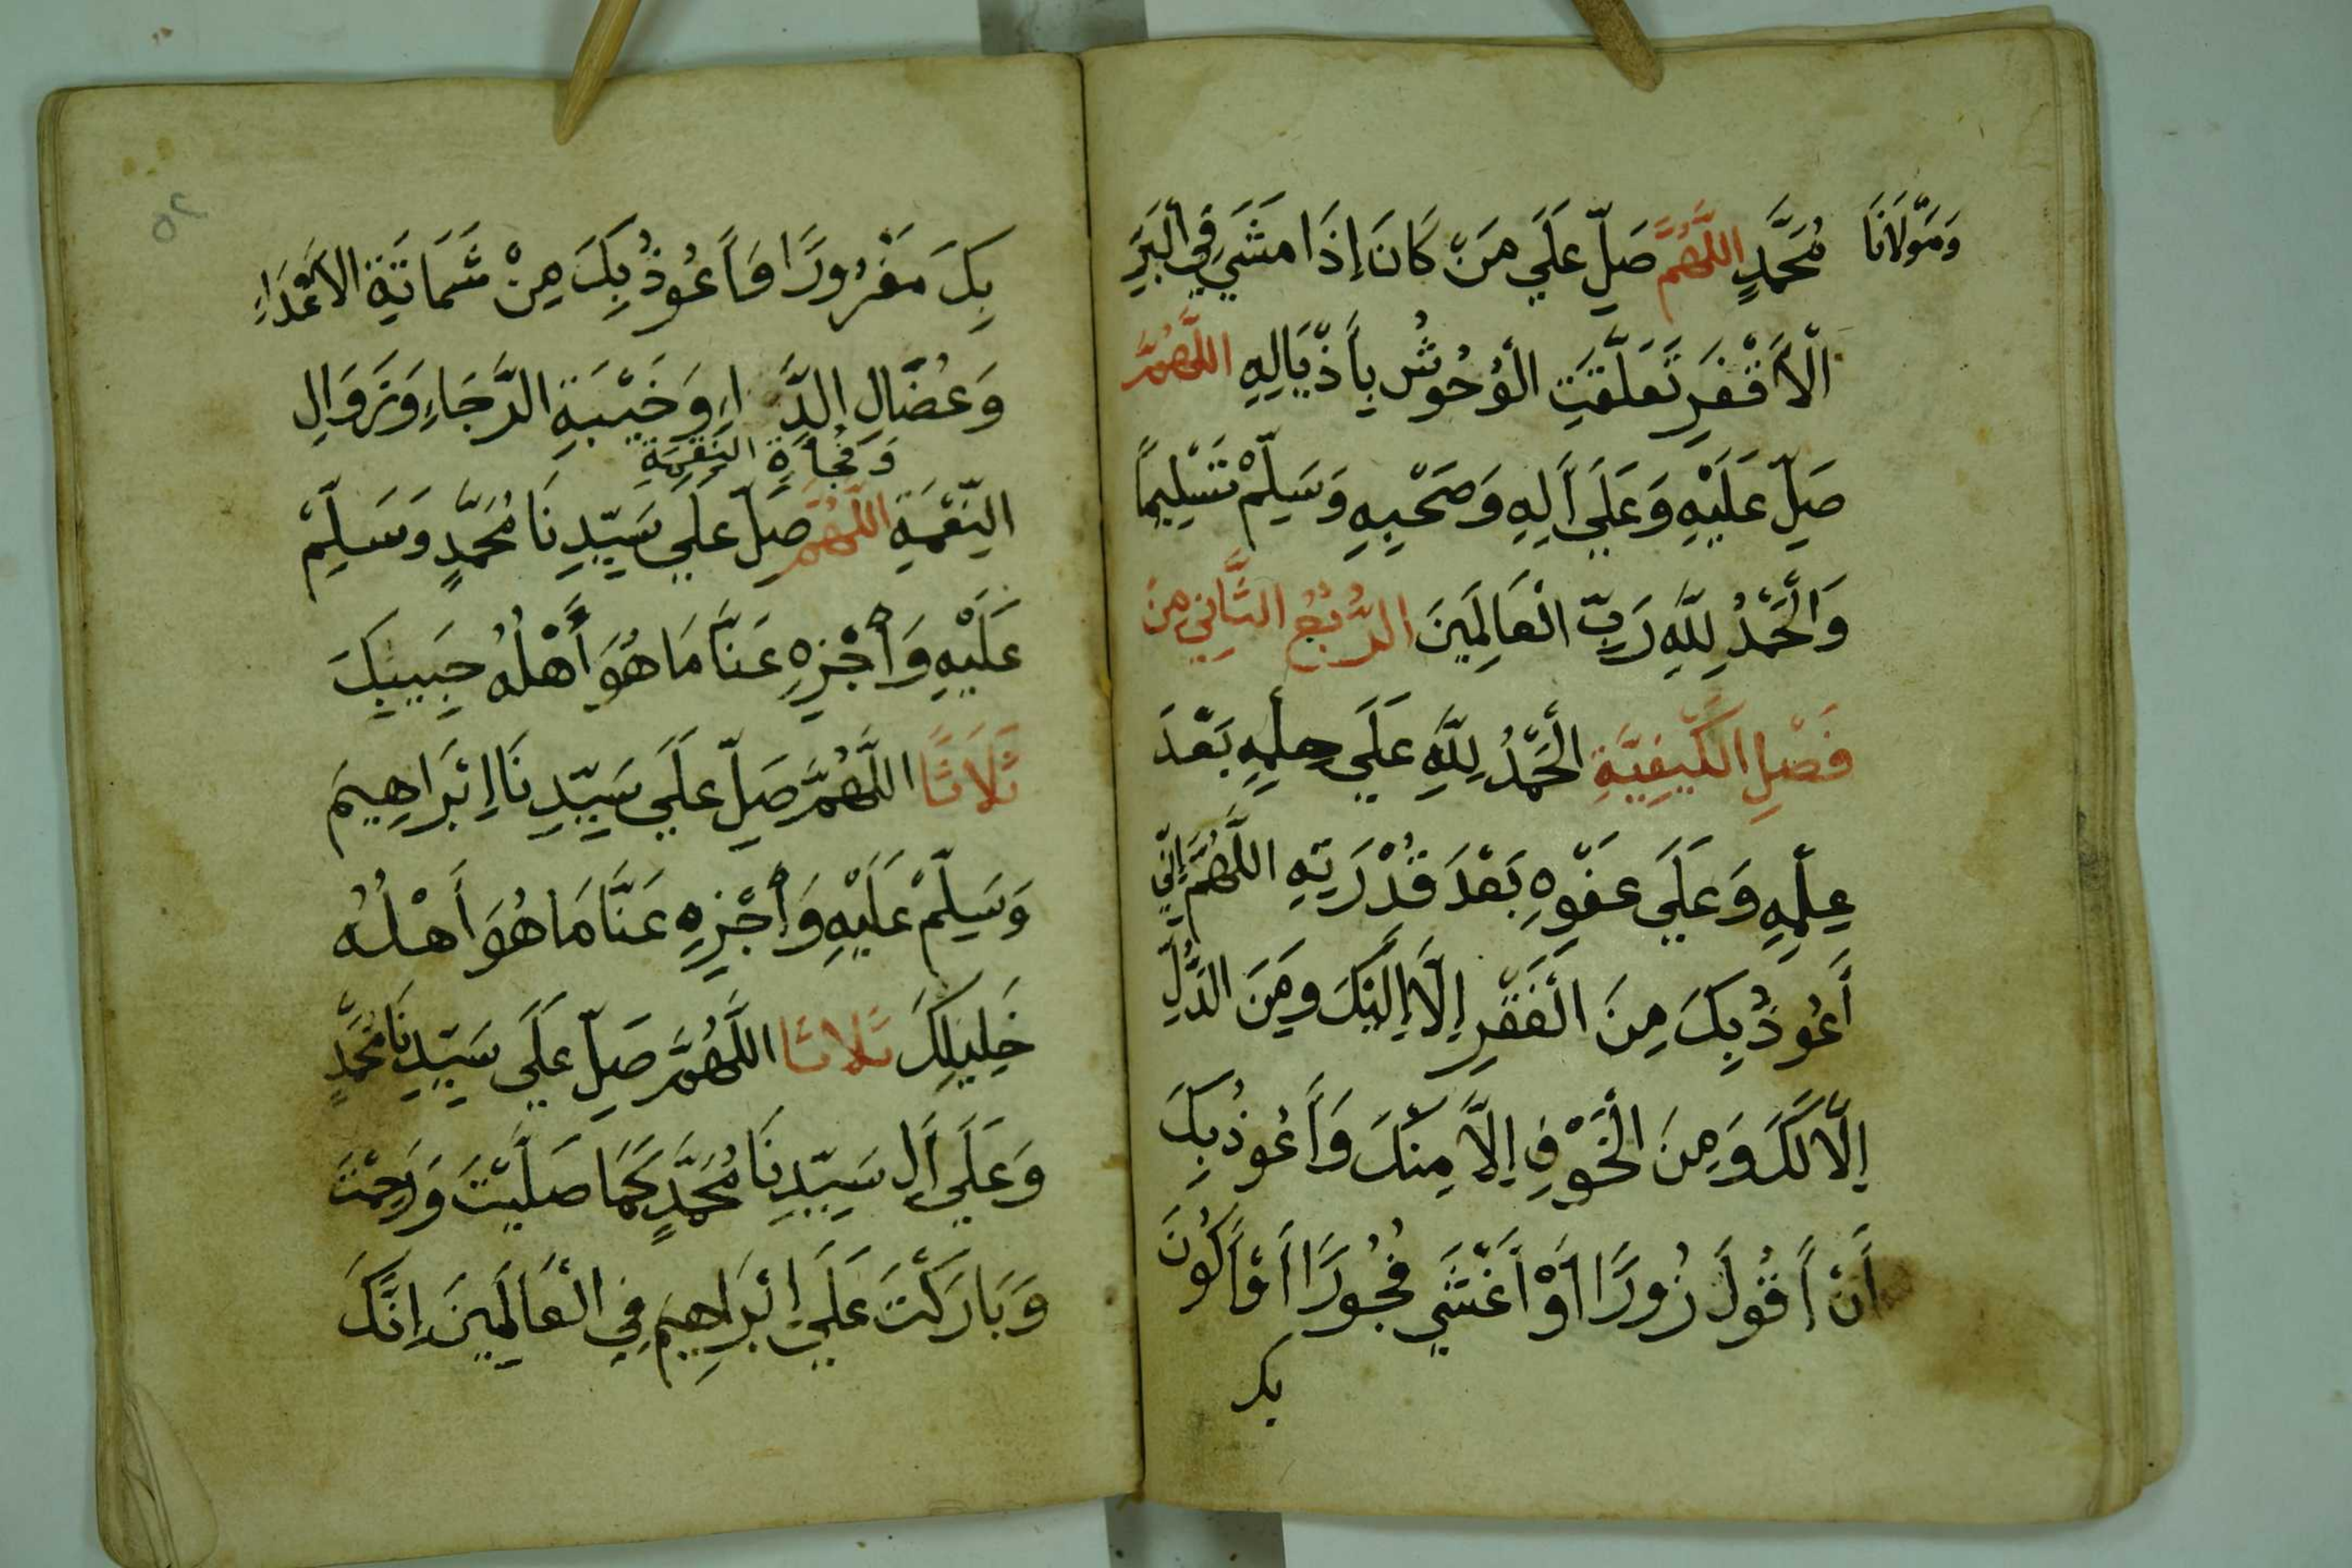 وَمَوْلَانَا مُحَمَّدٍ اللَّهُمَّ صَلِّ عَلَي مَنْ كَانَ إِذَا مَشَي فِي الْبَرِّ
الْأَقْفَرِ تَعَلَّقَتِ الْوُحُوشُ بِأَذْيَالِهِ اللَّهُمَّ
صَلِّ عَلَيْهِ وَعَلَي أَلِهِ وَصَحْبِهِ وَسَلِّمْ تَسْلِيمًا
وَالْحَمْدُ لِلَّهِ رَبِّ الْعَالَمِينَ الرُّبُعُ الثَّانِي مِنْ
فَصْلِ الْكَيْفِيَّةِ الْحَمْدُ لِلَّهِ عَلَي حِلْمِهِ بَعْدَ
عِلْمِهِ وَعَلَي عَفْوِهِ بَعْدَ قُدْرَتِهِ اللَّهُمَّ إِنِّي
أَعُوذُ بِكَ مِنَ الْفَقْرِ إِلَّا إِلَيْكَ وَمِنَ الذُّلِّ
إِلَّا لَكَ وَمِنَ الْخَوْفِ إِلَّا مِنْكَ وَأَعُوذُ بِكَ
أَنْ أَقُولَ زُورًا أَوْ أَغْشَي فُجُورًا أَوْ أَكُونَ
بك
٥٢
بِكَ مَغْرُورًا وَأَعُوذُ بِكَ مِنْ شَمَاتَةِ الْأَعْدَاءِ
وَعُضَّالِ الدَّاءِ وَخَيْبَةِ الرَّجَاءِ وَزَوَالِ
وَفُجَأَةِ النِّقْمَةِ
النِّعْمَةِ اللَّهُمَّ صَلِّ عَلَي سَيِّدِنَا مُحَمَّدٍ وَسَلِّمْ
عَلَيْهِ وَأَجْزِهِ عَنَّا مَا هُوَ أَهْلُهُ حَبِيبِكَ
ثَلَاثًا اللَّهُمَّ صَلِّ عَلَي سَيِّدِنَا إِبْرَاهِيمَ
وَسَلِّمْ عَلَيْهِ وَأَجْزِهِ عَنَّا مَا هُوَ أَهْلُهُ
خَلِيلِكَ ثَلَاثًا اللَّهُمَّ صَلِّ عَلَي سَيِّدِنَا مُحَمَّدٍ
وَعَلَي أَلِ سَيِّدِنَا مُحَمَّدٍ كَمَا صَلَّيْتَ وَرَحِمْتَ
وَبَارَكْتَ عَلَي إِبْرَاهِيمَ فِي الْعَالَمِينَ إِنَّكَ